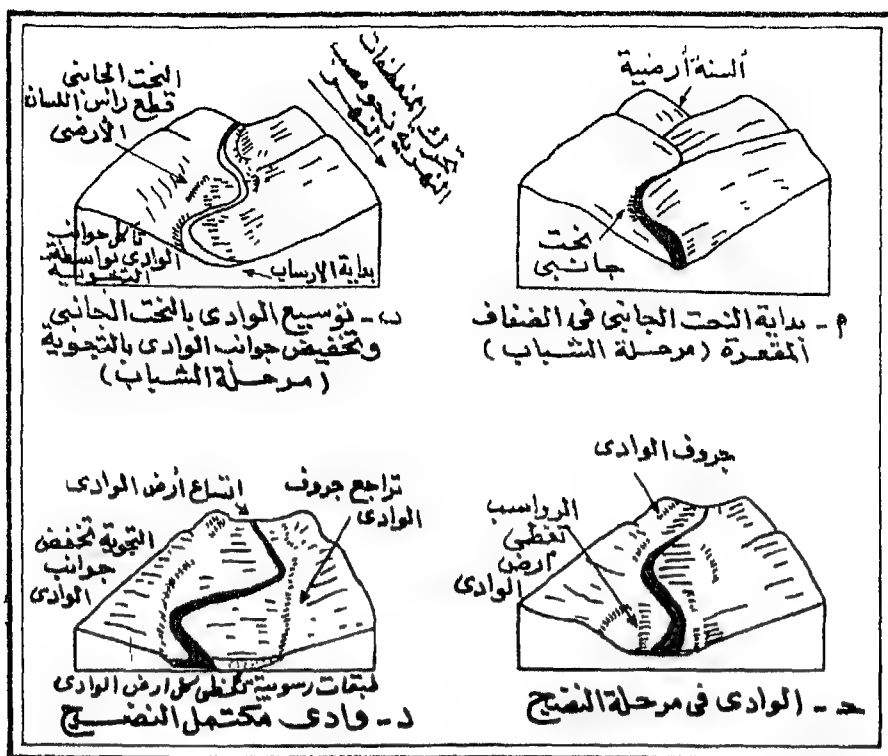 ألسنة أرضية
نحت
جانبى
م - بداية النحت الجانبى فى الضفاف
المقعرة (مرحلة الشباب)
النحت الجانبى
قطع رأس اللسان
الأرضى
تحرك المنعطفات
النهرية نحو مصب
النهر
تآكل جوانب
الوادى بواسطة
التجوية
بداية الارساب
ب - توسيع الوادى بالنحت الجانبى
وتخفيض جوانب الوادى بالتجوية
(مرحلة الشباب)
جروف الوادى
الرواسب
تغطى
أرض
الوادى
حـ - الوادى فى مرحلة النضج
تراجع جروف
الوادى
اتساع أرض الوادى
التجوية تخفض
جوانب
الوادى
طبقات رسوبية تغطى كل ارض الوادى
د - وادى مكتمل النضج